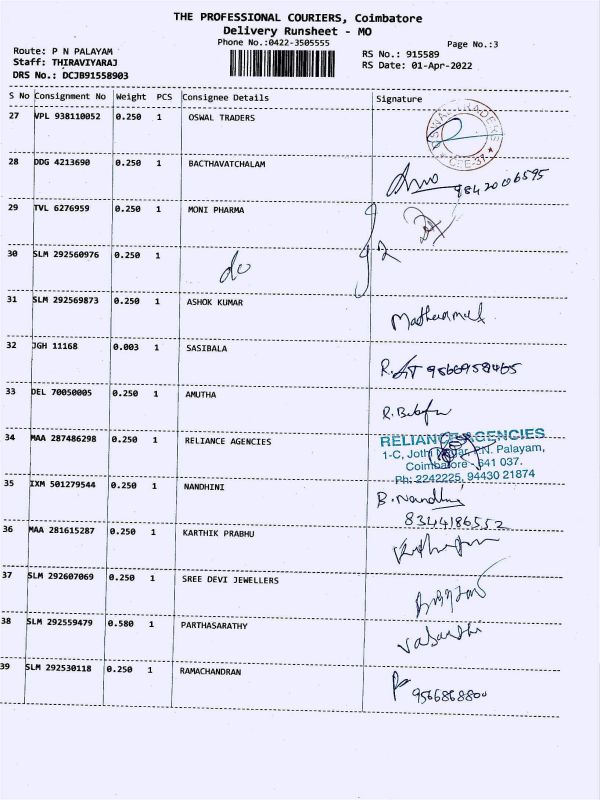 THE PROFESSIONAL COURIERS, Coimbatore
Delivery Runsheet - MO
Phone No.:0422-3505555
Page No.:3
Route: P N PALAYAM
Staff: THIRAVIYARAJ
DRS No.: DCJB91558903
RS No.: 915589
RS Date: 01-Apr-2022
S No Consignment No Weight PCS Consignee Details Signature
27 VPL 938110052 0.250 1 OSWAL TRADERS
OSWAL TRADERS
CBE-37
28 DDG 4213690 0.250 1 BACTHAVATCHALAM
9842006595
29 TVL 6276959 0.250 1 MONI PHARMA
30 SLM 292560976 0.250 1 do
31 SLM 292569873 0.250 1 ASHOK KUMAR
32 JGH 11168 0.003 1 SASIBALA
33 DEL 70050005 0.250 1 AMUTHA
34 MAA 287486298 0.250 1 RELIANCE AGENCIES
RELIANCE AGENCIES
1-C, Jothi Nagar, P.N. Palayam,
Coimbatore - 641 037.
Ph: 2242225, 94430 21874
35 IXM 501279544 0.250 1 NANDHINI B. Nandhini
8344186552
36 MAA 281615287 0.250 1 KARTHIK PRABHU
37 SLM 292607069 0.250 1 SREE DEVI JEWELLERS
38 SLM 292559479 0.580 1 PARTHASARATHY
39 SLM 292530118 0.250 1 RAMACHANDRAN
9566868800